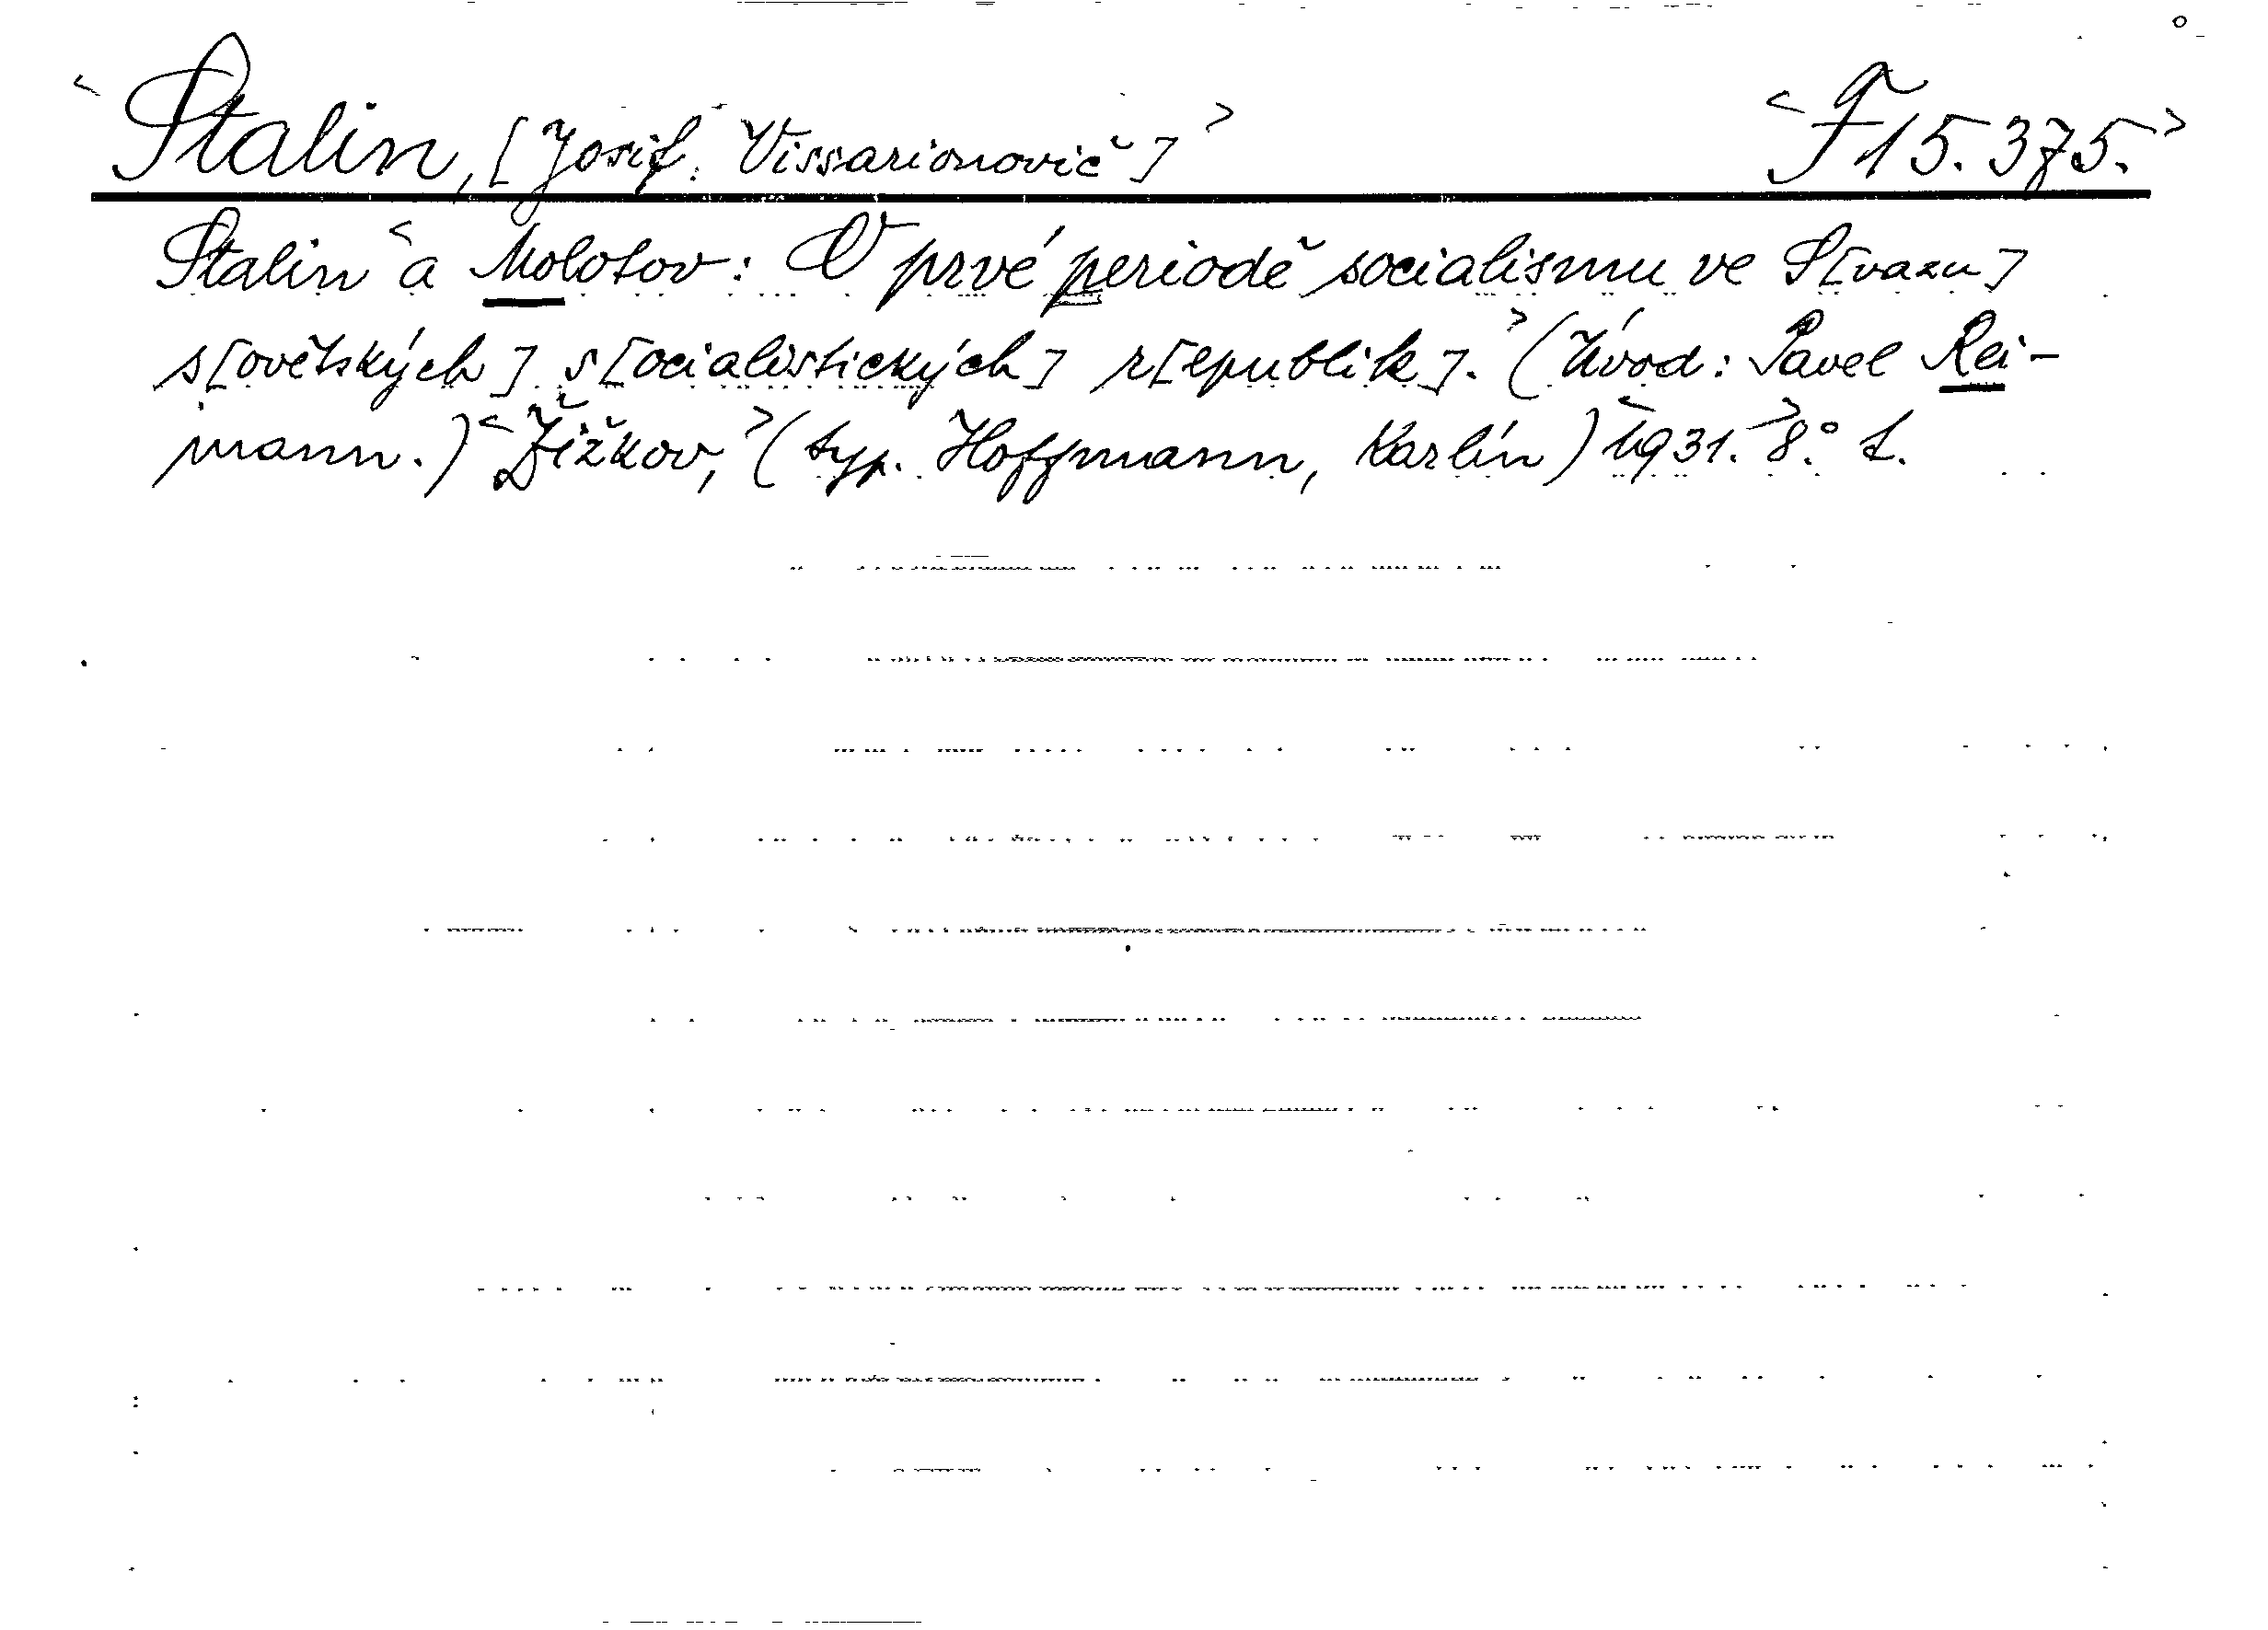 <Stalin, [Josif Vissarionovič]> <F 15.375.>
Stalin <a Molotov: O prvé periodě socialismu ve S[vazu]
s[ovětských] s[ocialistických] r[epublik].> (Úvod: Pavel Rei-
mann.) <Žižkov,> (typ. Hoffmann, Karlín) <1931.> 8.° L.